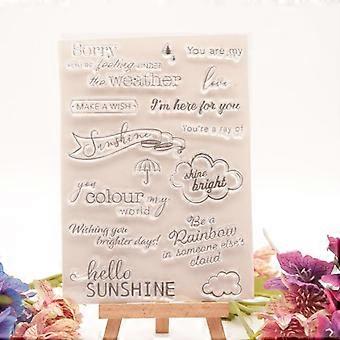 Sorry
You are my
you're feeling UNDER
the weather
love
MAKE A WISH
I'm here for you
You're a ray of
Sunshine
shine
bright
you
colour my
world
Wishing you
brighter days!
Be a
Rainbow
in someone else's
cloud
hello
SUNSHINE